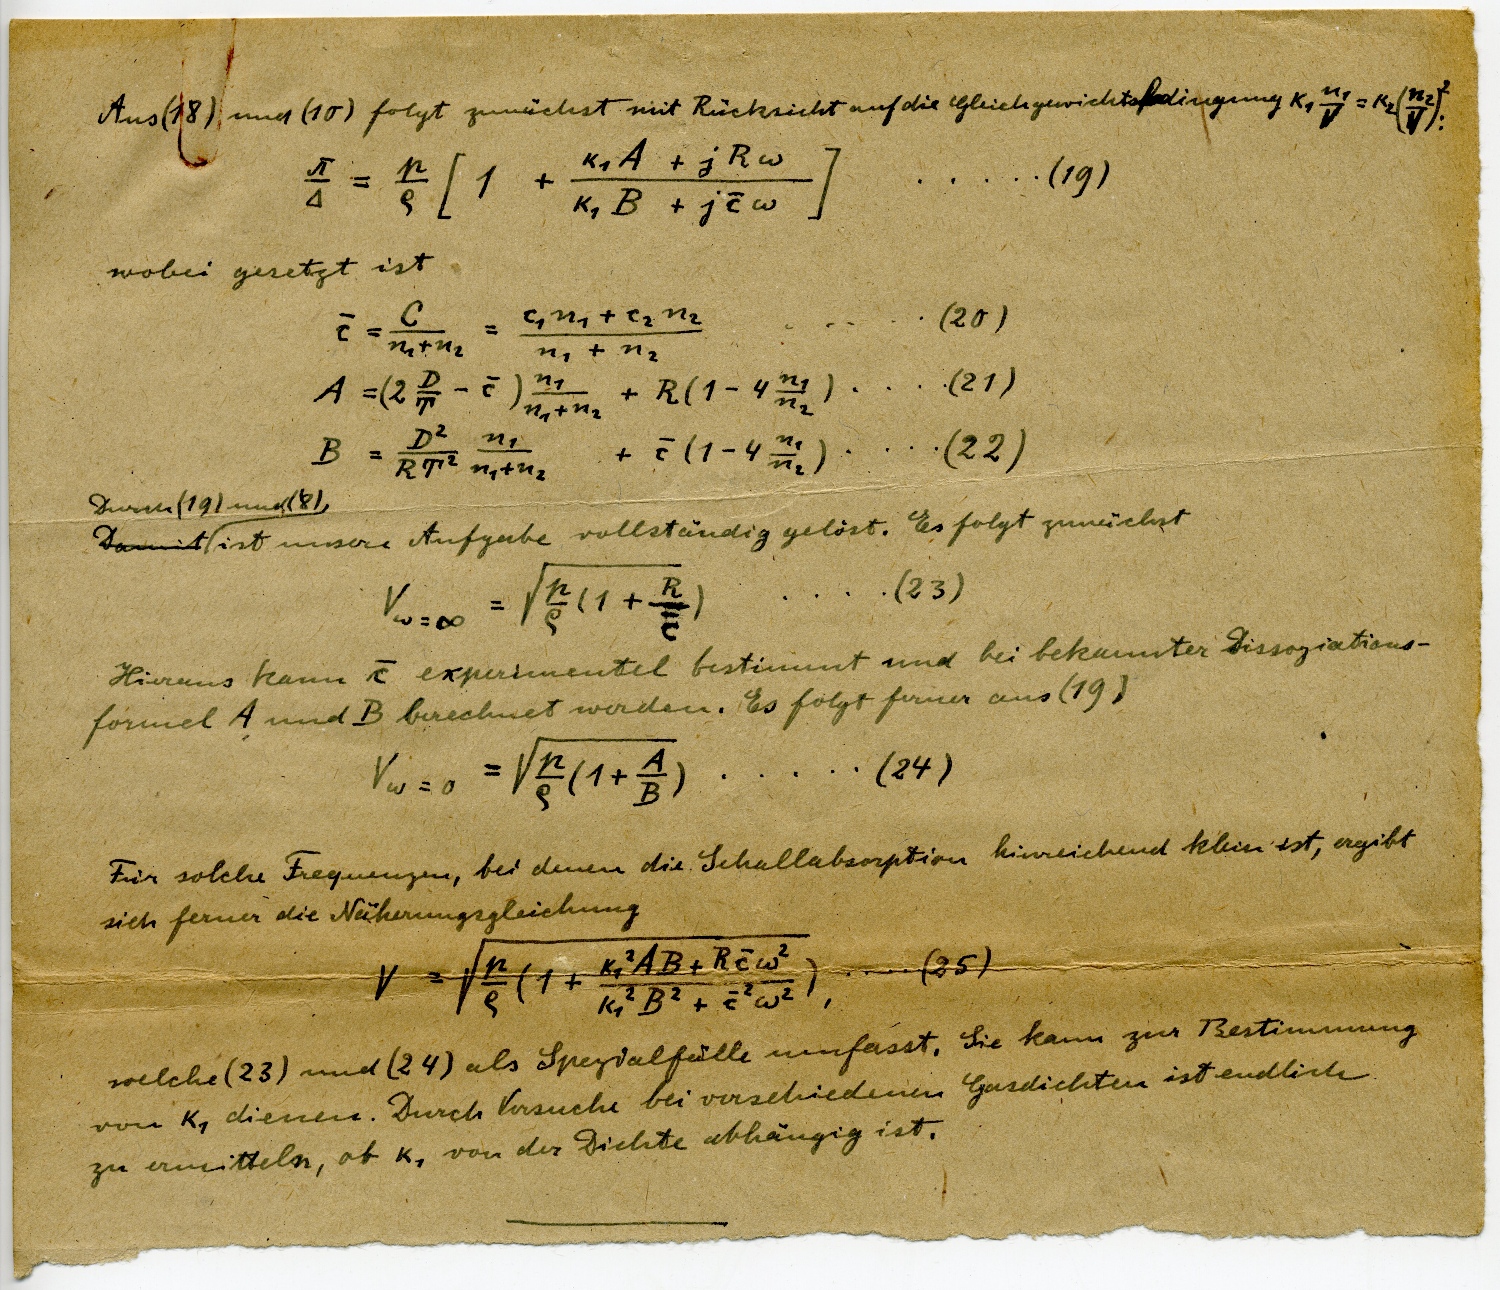 Aus (18) und (10) folgt zunächst mit Rücksicht auf die Gleichgewichtsbedingung κ₁ n₁/V = κ₂ (n₂/V)²:
π/Δ = p/ϱ [ 1 + (κ₁A + jRω)/(κ₁B + jc̄ω) ] . . . . . (19)
wobei gesetzt ist
c̄ = C/(n₁+n₂) = (c₁n₁ + c₂n₂)/(n₁ + n₂) . . . . . (20)
A = (2 D/T - c̄) n₁/(n₁+n₂) + R(1 - 4 n₁/n₂) . . . . (21)
B = D²/RT² n₁/(n₁+n₂) + c̄ (1 - 4 n₁/n₂) . . . . (22)
Durch (19) und (8),
Damit ist unsere Aufgabe vollständig gelöst. Es folgt zunächst
V_{ω=∞} = √(p/ϱ (1 + R/c̄)) . . . . . (23)
Hieraus kann c̄ experimentel bestimmt und bei bekannter Dissoziations-
formel A und B berechnet werden. Es folgt ferner aus (19)
V_{ω=0} = √(p/ϱ (1 + A/B)) . . . . . (24)
Für solche Frequenzen, bei denen die Schallabsorption hinreichend klein ist, ergibt
sich ferner die Näherungsgleichung
V = √(p/ϱ (1 + (κ₁²AB + Rc̄ω²)/(κ₁²B² + c̄²ω²))), . . . . . (25)
welche (23) und (24) als Spezialfälle umfasst. Sie kann zur Bestimmung
von κ₁ dienen. Durch Versuche bei verschiedenen Gasdichten ist endlich
zu ermitteln, ob κ₁ von der Dichte abhängig ist.